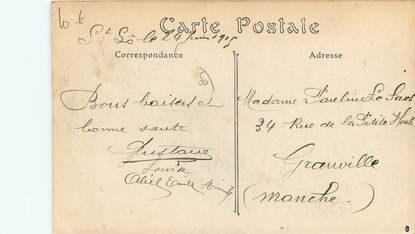 Carte Postale
St Lô le 24 Juin 1915
Correspondance
Adresse
Bons baisers et
bonne santé
Gustave
Louise
Emile
Madame Pauline Le
34 Rue de la Petite
Granville
(Manche.)